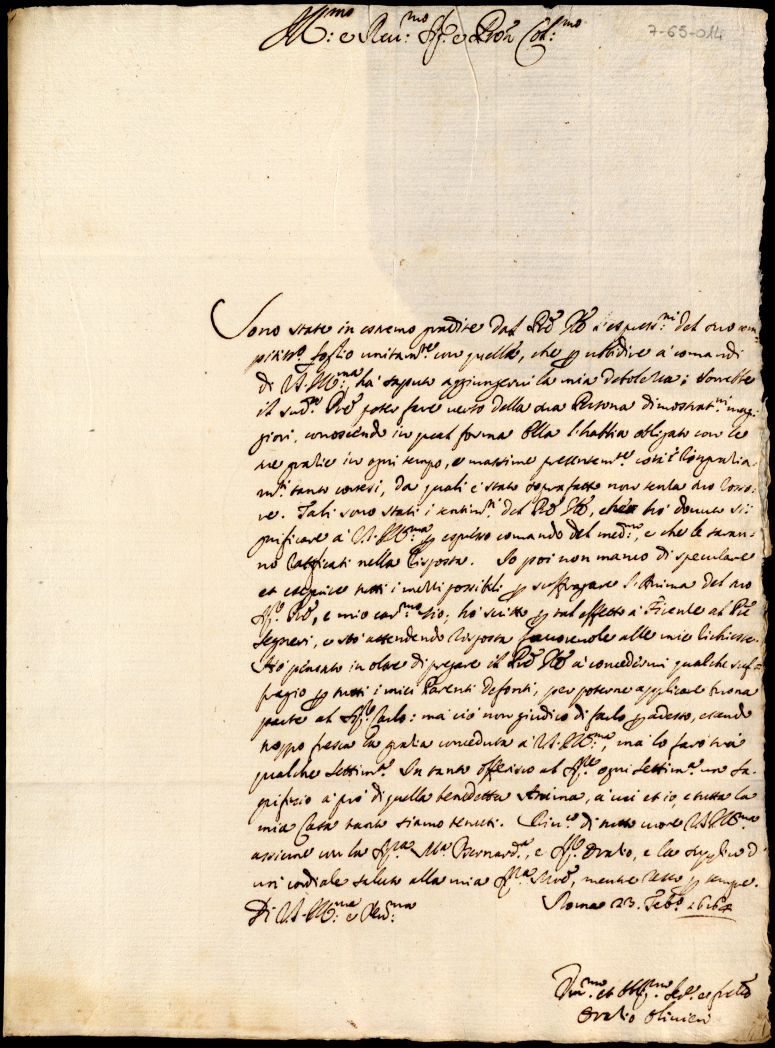 Ill:mo e Rev:mo Sig.re e Pron Col:mo
7-65-014
Sono state in estremo gradite dal P̃re Ñro l'espress:ni del suo com=
pitiss:o foglio unitam:te con quelle, che p ubbidire a' comandi
di V.S. Ill:ma, ha' saputo aggiungervi la mia debolezza; Vorrebbe
il sud:o P̃re poter fare verso della sua Persona dimostrat:ni mag=
giori, conoscendo in qual forma Ella l'habbia obligato con le
sue gratie in ogni tempo, e massime presentem:te così i ringratia=
m:ti tanto cortesi, da quali è stato soprafatto non senza suo rosso=
re. Tali sono stati i sentim:ti del P̃re Ñro, che ho' dovuto si=
gnificare a' V.S. Ill:ma p espresso comando del med:mo, e che le saran=
no ratificati nella risposta. Io poi non manco di speculare
et eseguire tutti i mezzi possibili p suffragare l'Anima del suo
Sig:re P̃re, e mio car:mo zio; ho' scritto p tal effetto a' Firenze al P̃re
Segneri, e sto' attendendo risposta favorevole alle mie richieste.
Ho' pensato in oltre di pregare il P̃re Ñro a' concedermi qualche suf=
fragio p tutti i miei Parenti defonti, per poterne applicare buona
parte al Sig:re Carlo: ma ciò non giudico di farlo p adesso, essendo
troppo fresca la gratia conceduta a' V.S. Ill:ma, ma lo farò trà
qualche settim:a. In tanto offerisco al Sig:re ogni settim:a un Sa=
grifizio a prò di quella benedetta Anima, a' cui et io, e tutta la
mia Casa tanto siamo tenuti. Riv:co di tutto cuore V.S. Ill:ma
assieme con la Sig:ra M:a Bernard:a, e Sig:re Oratio, e la supplico d'
un cordiale saluto alla mia Sig:ra M̃re, mentre resto p sempre.
Di V.S. Ill:ma e Rev:ma Roma 23. Feb:o 1684
Dev:mo et Obblig:mo Ser:e e frello
Oratio Olivieri